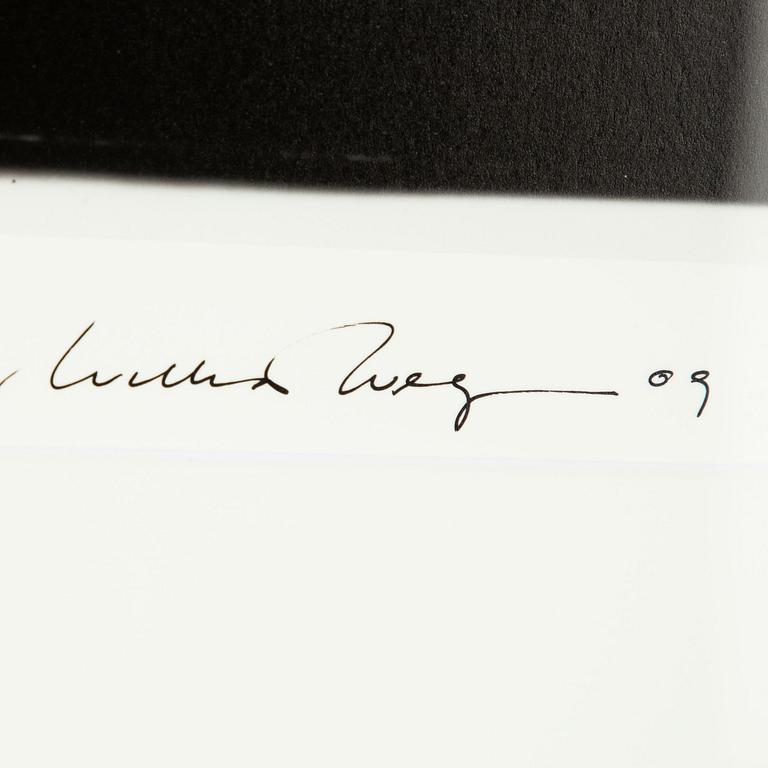 William Weg 09